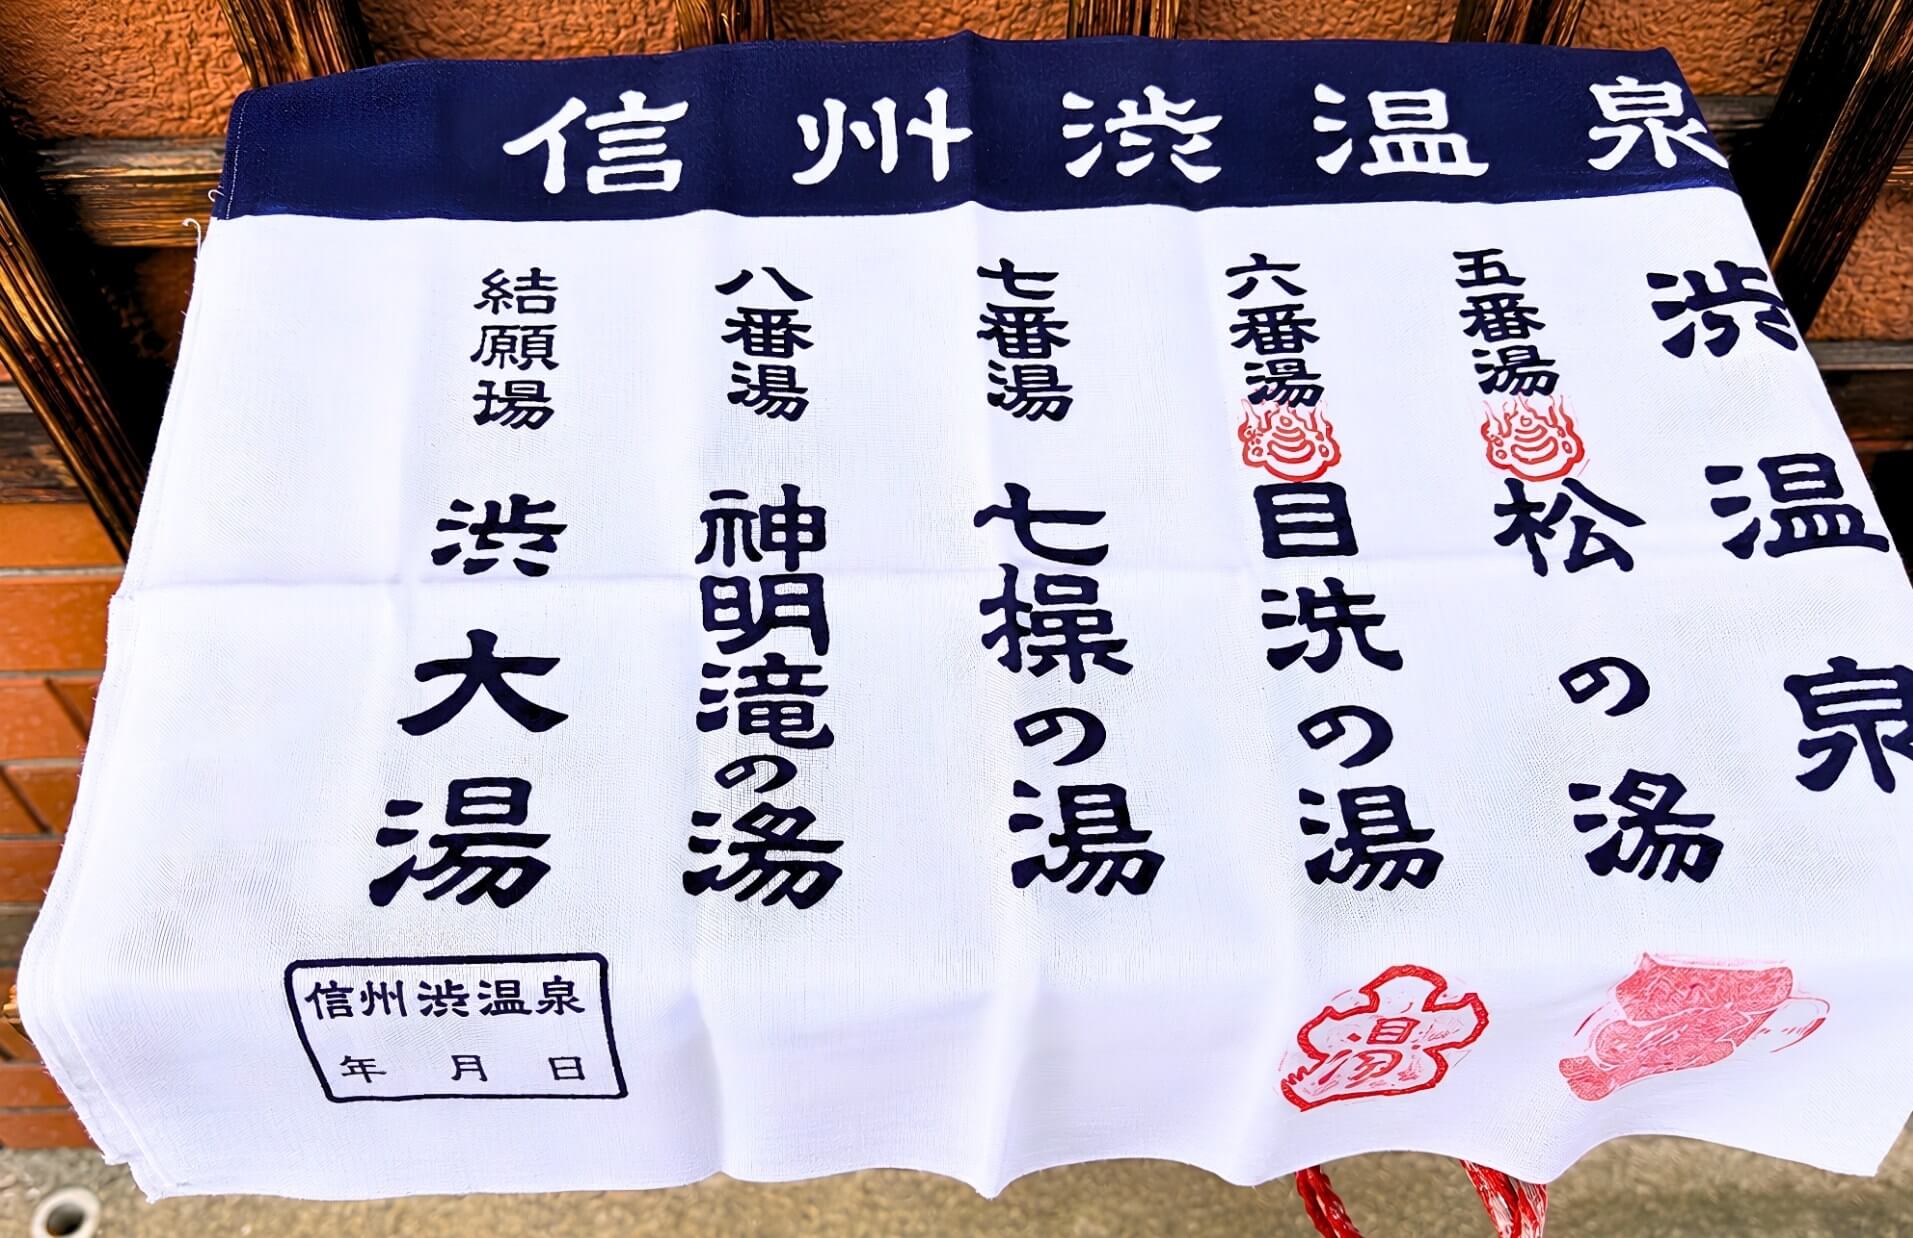 信州渋温泉
渋温泉
五番湯
松の湯
六番湯
目洗の湯
七番湯
七操の湯
八番湯
神明滝の湯
結願場
渋大湯
湯
信州渋温泉
年 月 日